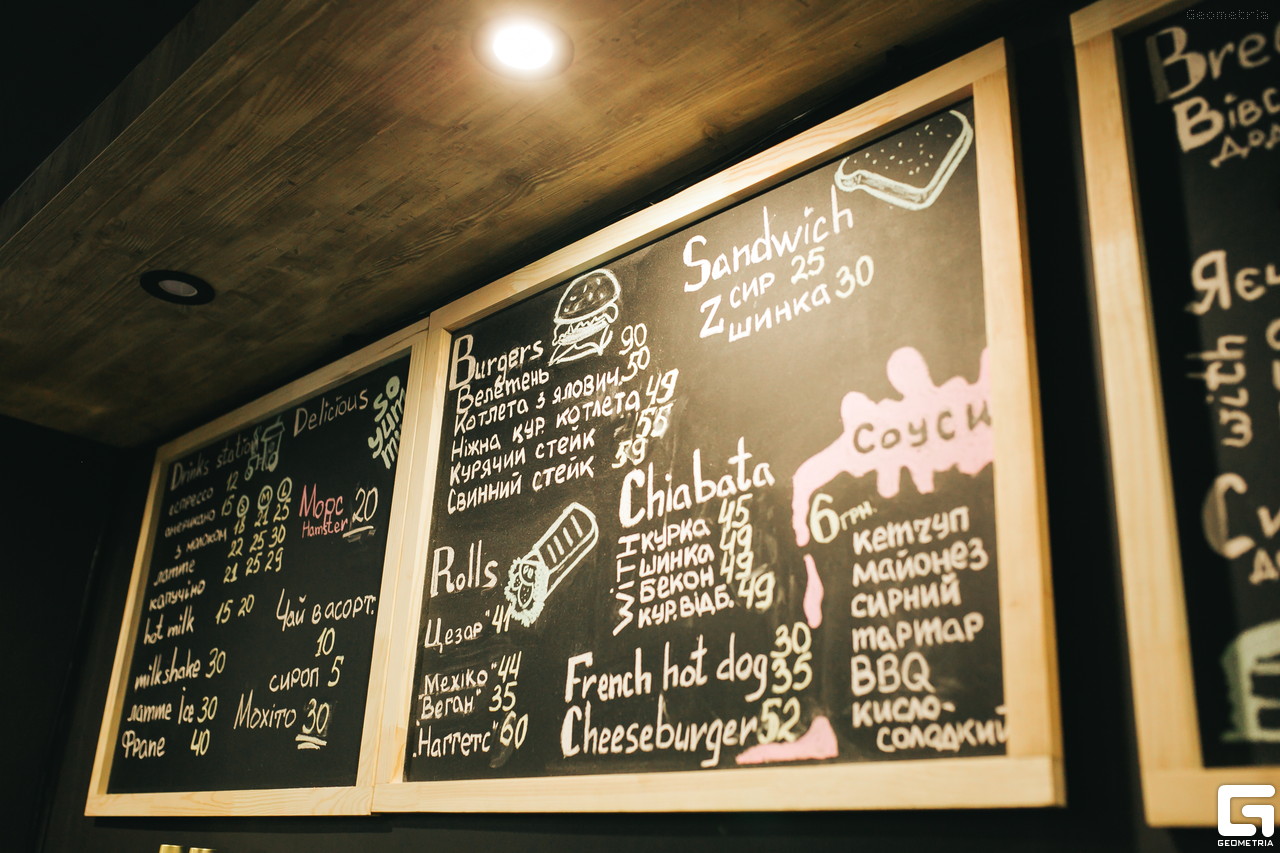 Geometria
Drinks station
еспрессо 12
американо 15
S M L
з молоком 18 21 25
латте 22 25 30
капучіно 21 25 29
hot milk 15 20
milkshake 30
латте Ice 30
Фрапе 40
Delicious
so
yum
mi
Морс
Hamster 20
Чай в асорт.
10
сироп 5
Мохіто 30
Burgers
Велетень 90
Котлета з ялович. 50
Ніжна кур. котлета 49
Курячий стейк 55
Свинний стейк 59
Rolls
"Цезар" 41
"Мехіко" 44
"Веган" 35
"Наггетс" 60
Sandwich
Z сир 25
шинка 30
Chiabata
WITH
курка 45
шинка 49
бекон 49
кур.відб. 49
French hot dog 30
35
Cheeseburger 52
Соуси
6 грн.
кетчуп
майонез
сирний
тартар
BBQ
кисло-
солодкий
Bre
Вівс
дод
Яєч
with
Си
GEOMETRIA